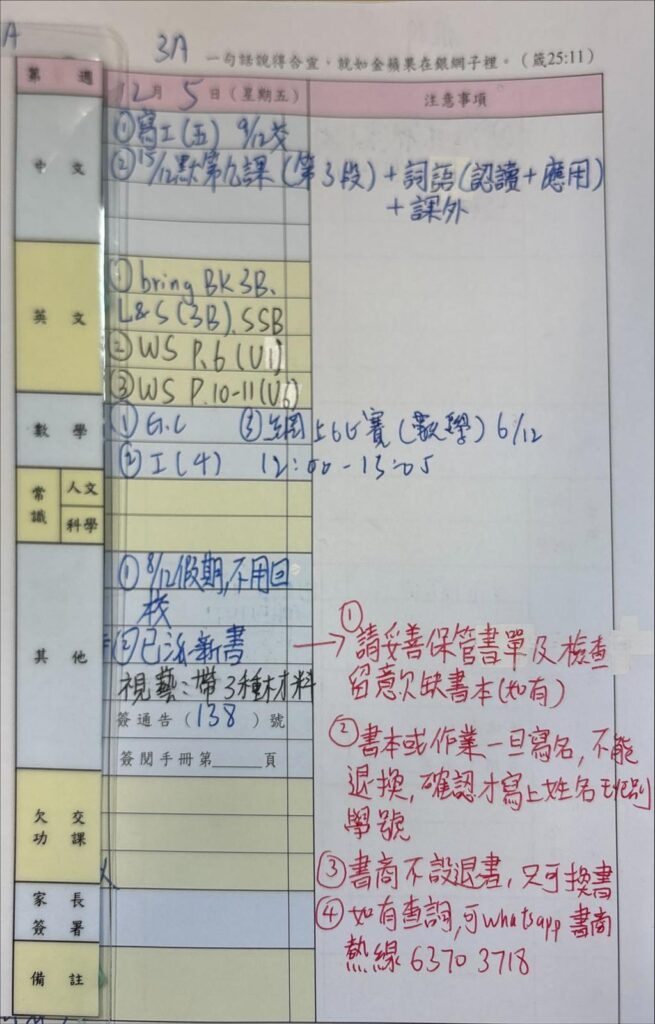 A
3A
一句話說得合宜，就如金蘋果在銀網子裡。（箴25:11）
第 週
12月 5日（星期五）
注意事項
中 文
①寫工(五) 9/12交
②15/12默第九課(第3段)+詞語(認讀+應用)
+課外
英 文
①bring BK3B、
L&S(3B)、SSB
②WS P.6(U1)
③WS P.10-11(U6)
數 學
①G.C ③ 賽(數學) 6/12
②工(4) 12:00-13:05
常識
人文
科學
其 他
①8/12假期,不用回
校
②已派新書
視藝：帶3種材料
簽通告（138）號
簽閱手冊第______頁
→①請妥善保管書單及檢查
留意欠缺書本(如有)
②書本或作業一旦寫名,不能
退換,確認才寫上姓名班別
學號
③書商不設退書,只可換書
④如有查詢,可whatsapp書商
熱線 6370 3718
欠 交
功 課
家 長
簽 署
備 註